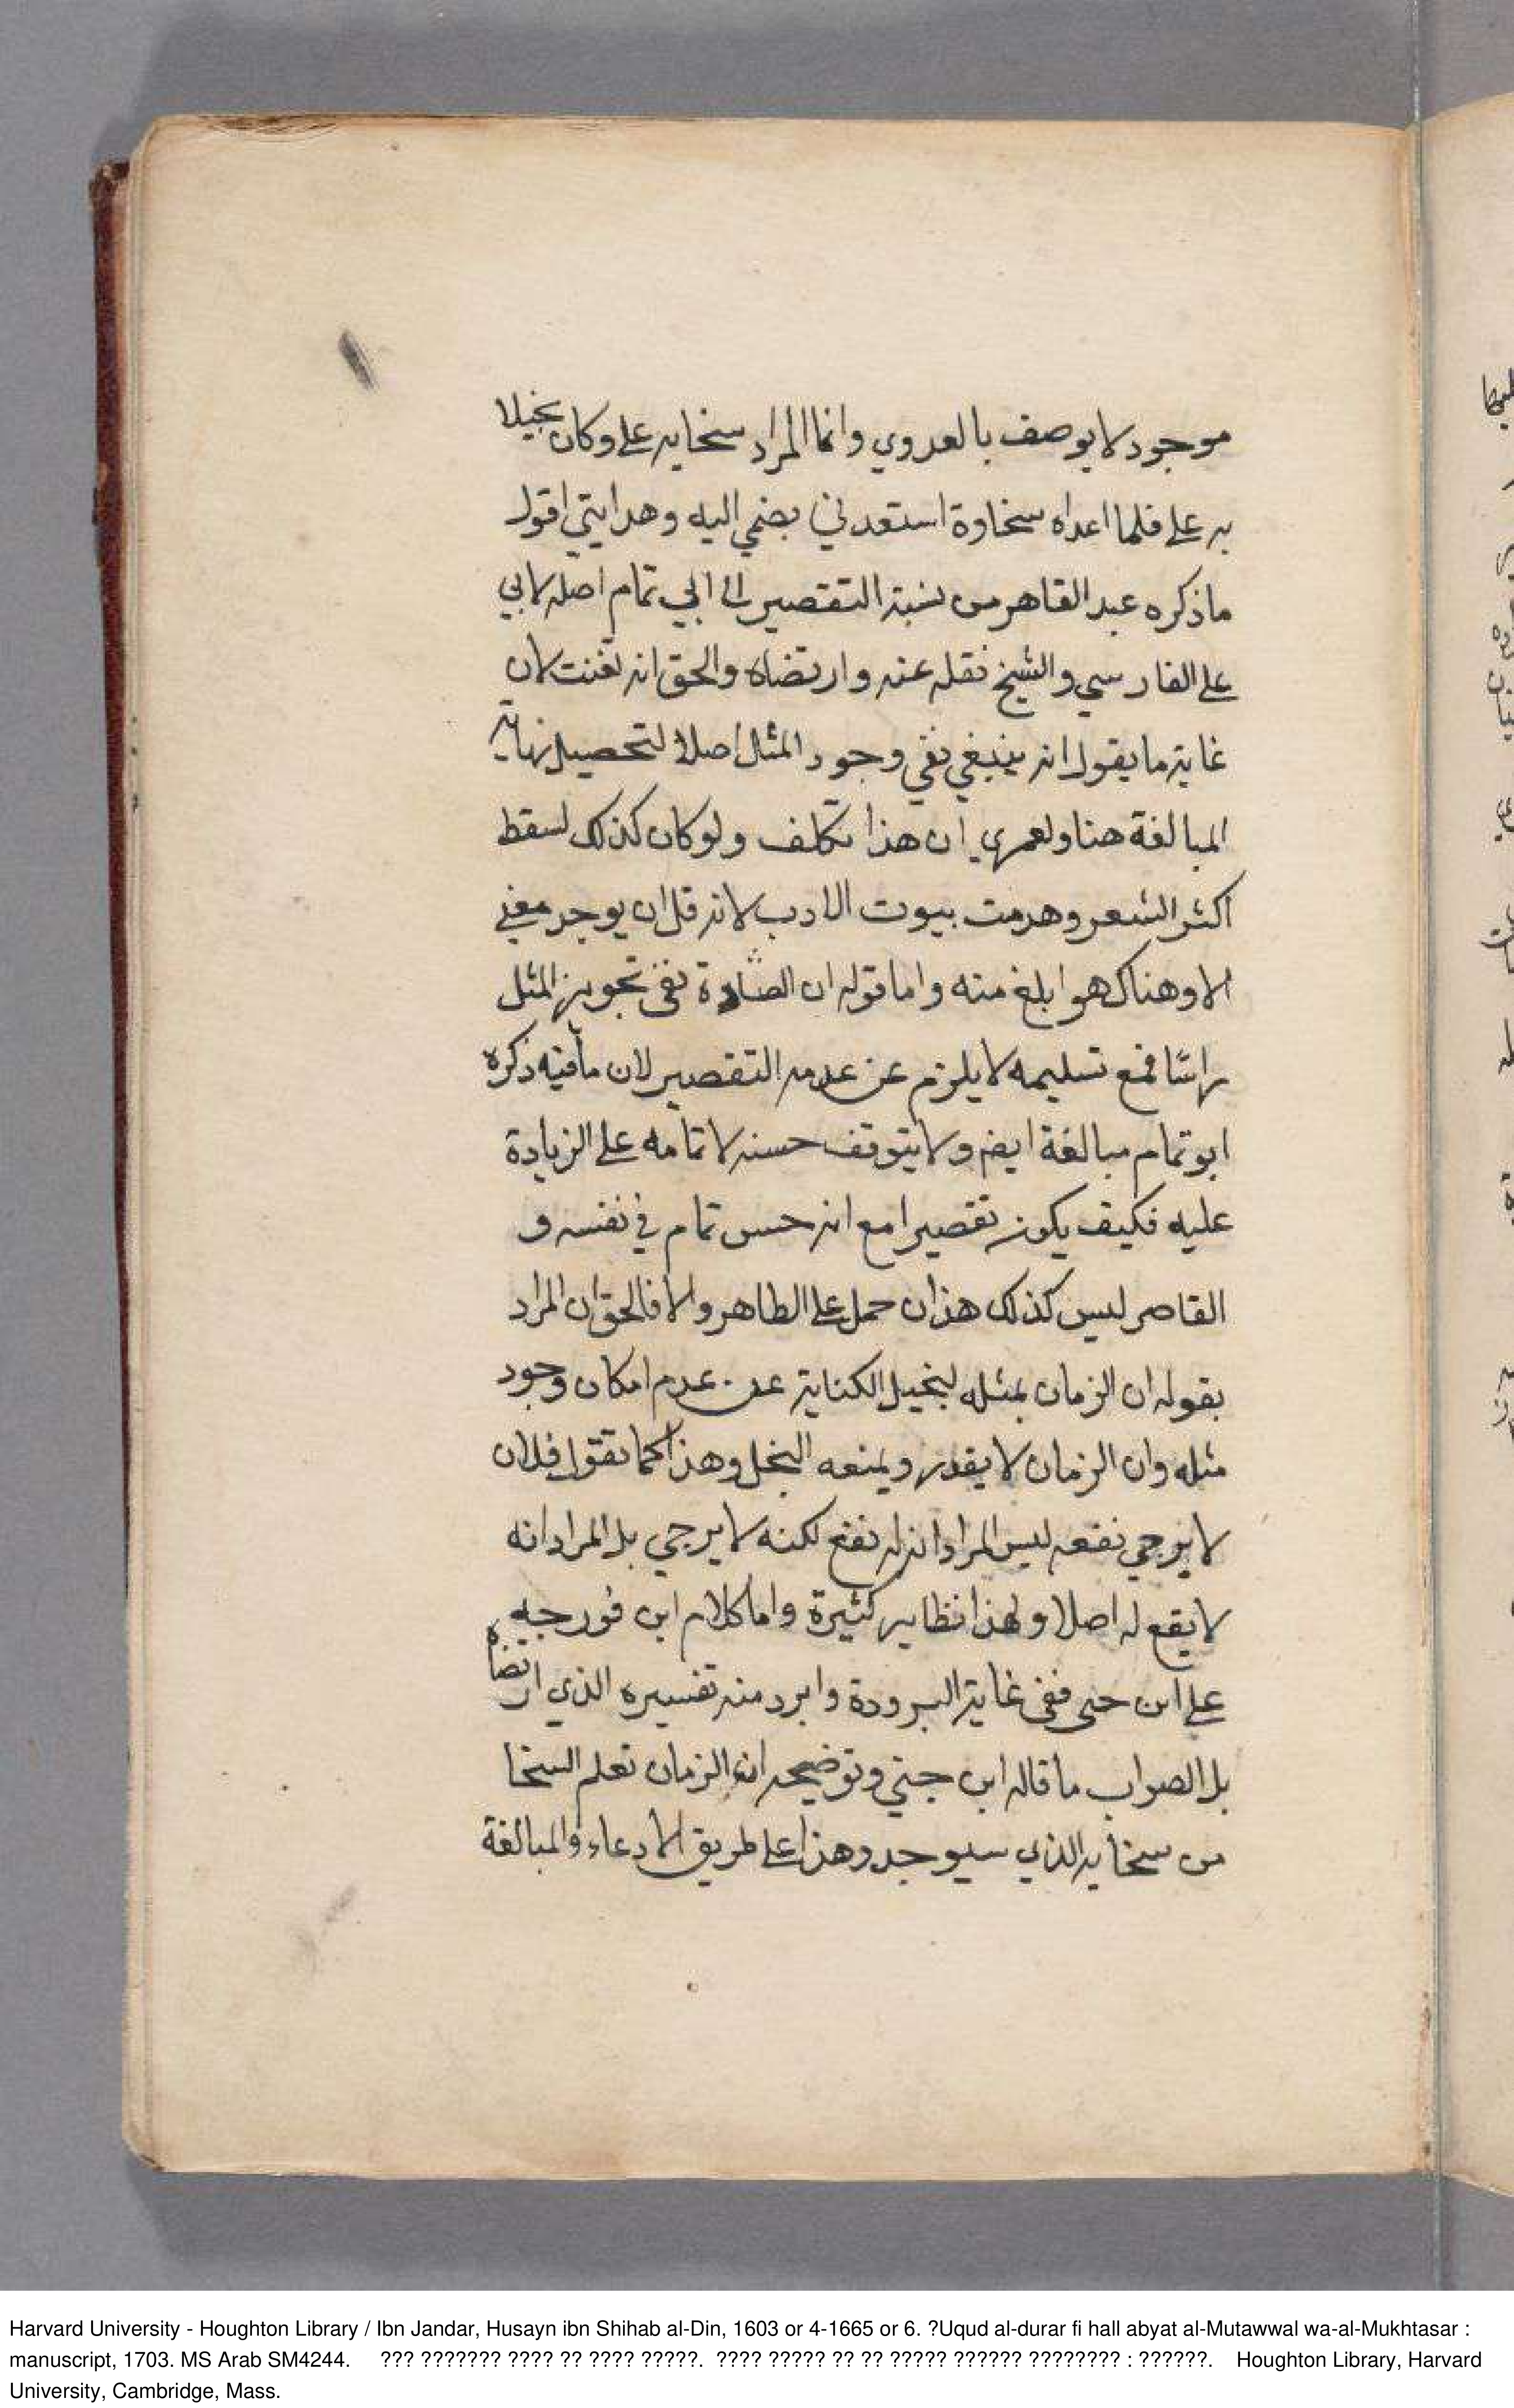 موجود لا يوصف بالعدوي وانما المراد سخايه علي وكان بخيلا
به علي فلما اعداه سخاوة استعدني بضمي اليه وهدايتي اقول
ما ذكره عبد القاهر من نسبة التقصير الى ابي تمام اصله لابي
علي الفارسي والشيخ نقله عنه وارتضاه والحق انه تعنت لان
غاية ما يقول انه ينبغي نفي وجود المثل اصلا لتحصيل نهاية
المبالغة هنا ولعمري ان هذا تكلف ولو كان كذلك لسقط
اكثر الشعر وهدمت بيوت الادب لانه قل ان يوجد معني
الا وهناك هو ابلغ منه واما قوله ان نفي تجويز المثل
راسًا فمع تسليمه لا يلزم عن عدمه التقصير لان ما فيه ذكره
ابو تمام مبالغة ايض ولا يتوقف حسنه لا تمامه علي الزيادة
عليه فكيف يكون تقصيرا مع انه حسن تمام في نفسه و
القاصر ليس كذلك هذا ان حمل علي الظاهر والا فالحق ان المراد
بقوله ان الزمان بمثله لبخيل الكناية عن عدم امكان وجود
مثله وان الزمان لا يقدر ويمنعه البخل وهذا كما تقول فلان
لا يرجي نفعه ليس المراد انه له نفع لكنه لا يرجي بل المراد انه
لا يقع له اصلا ولهذا نظاير كثيرة واما كلام ابن فورجه
علي ابن جني ففي غاية البرودة وابرد منه تفسيره الذي ارتضاه
بل الصواب ما قاله ابن جني وتوضيحه ان الزمان تعلم السخا
من سخايه الذي سيوجد وهذا علي طريق الادعاء والمبالغة
Harvard University - Houghton Library / Ibn Jandar, Husayn ibn Shihab al-Din, 1603 or 4-1665 or 6. ?Uqud al-durar fi hall abyat al-Mutawwal wa-al-Mukhtasar :
manuscript, 1703. MS Arab SM4244. ??? ??????? ???? ?? ???? ?????. ???? ????? ?? ?? ????? ?????? ???????? : ??????. Houghton Library, Harvard
University, Cambridge, Mass.